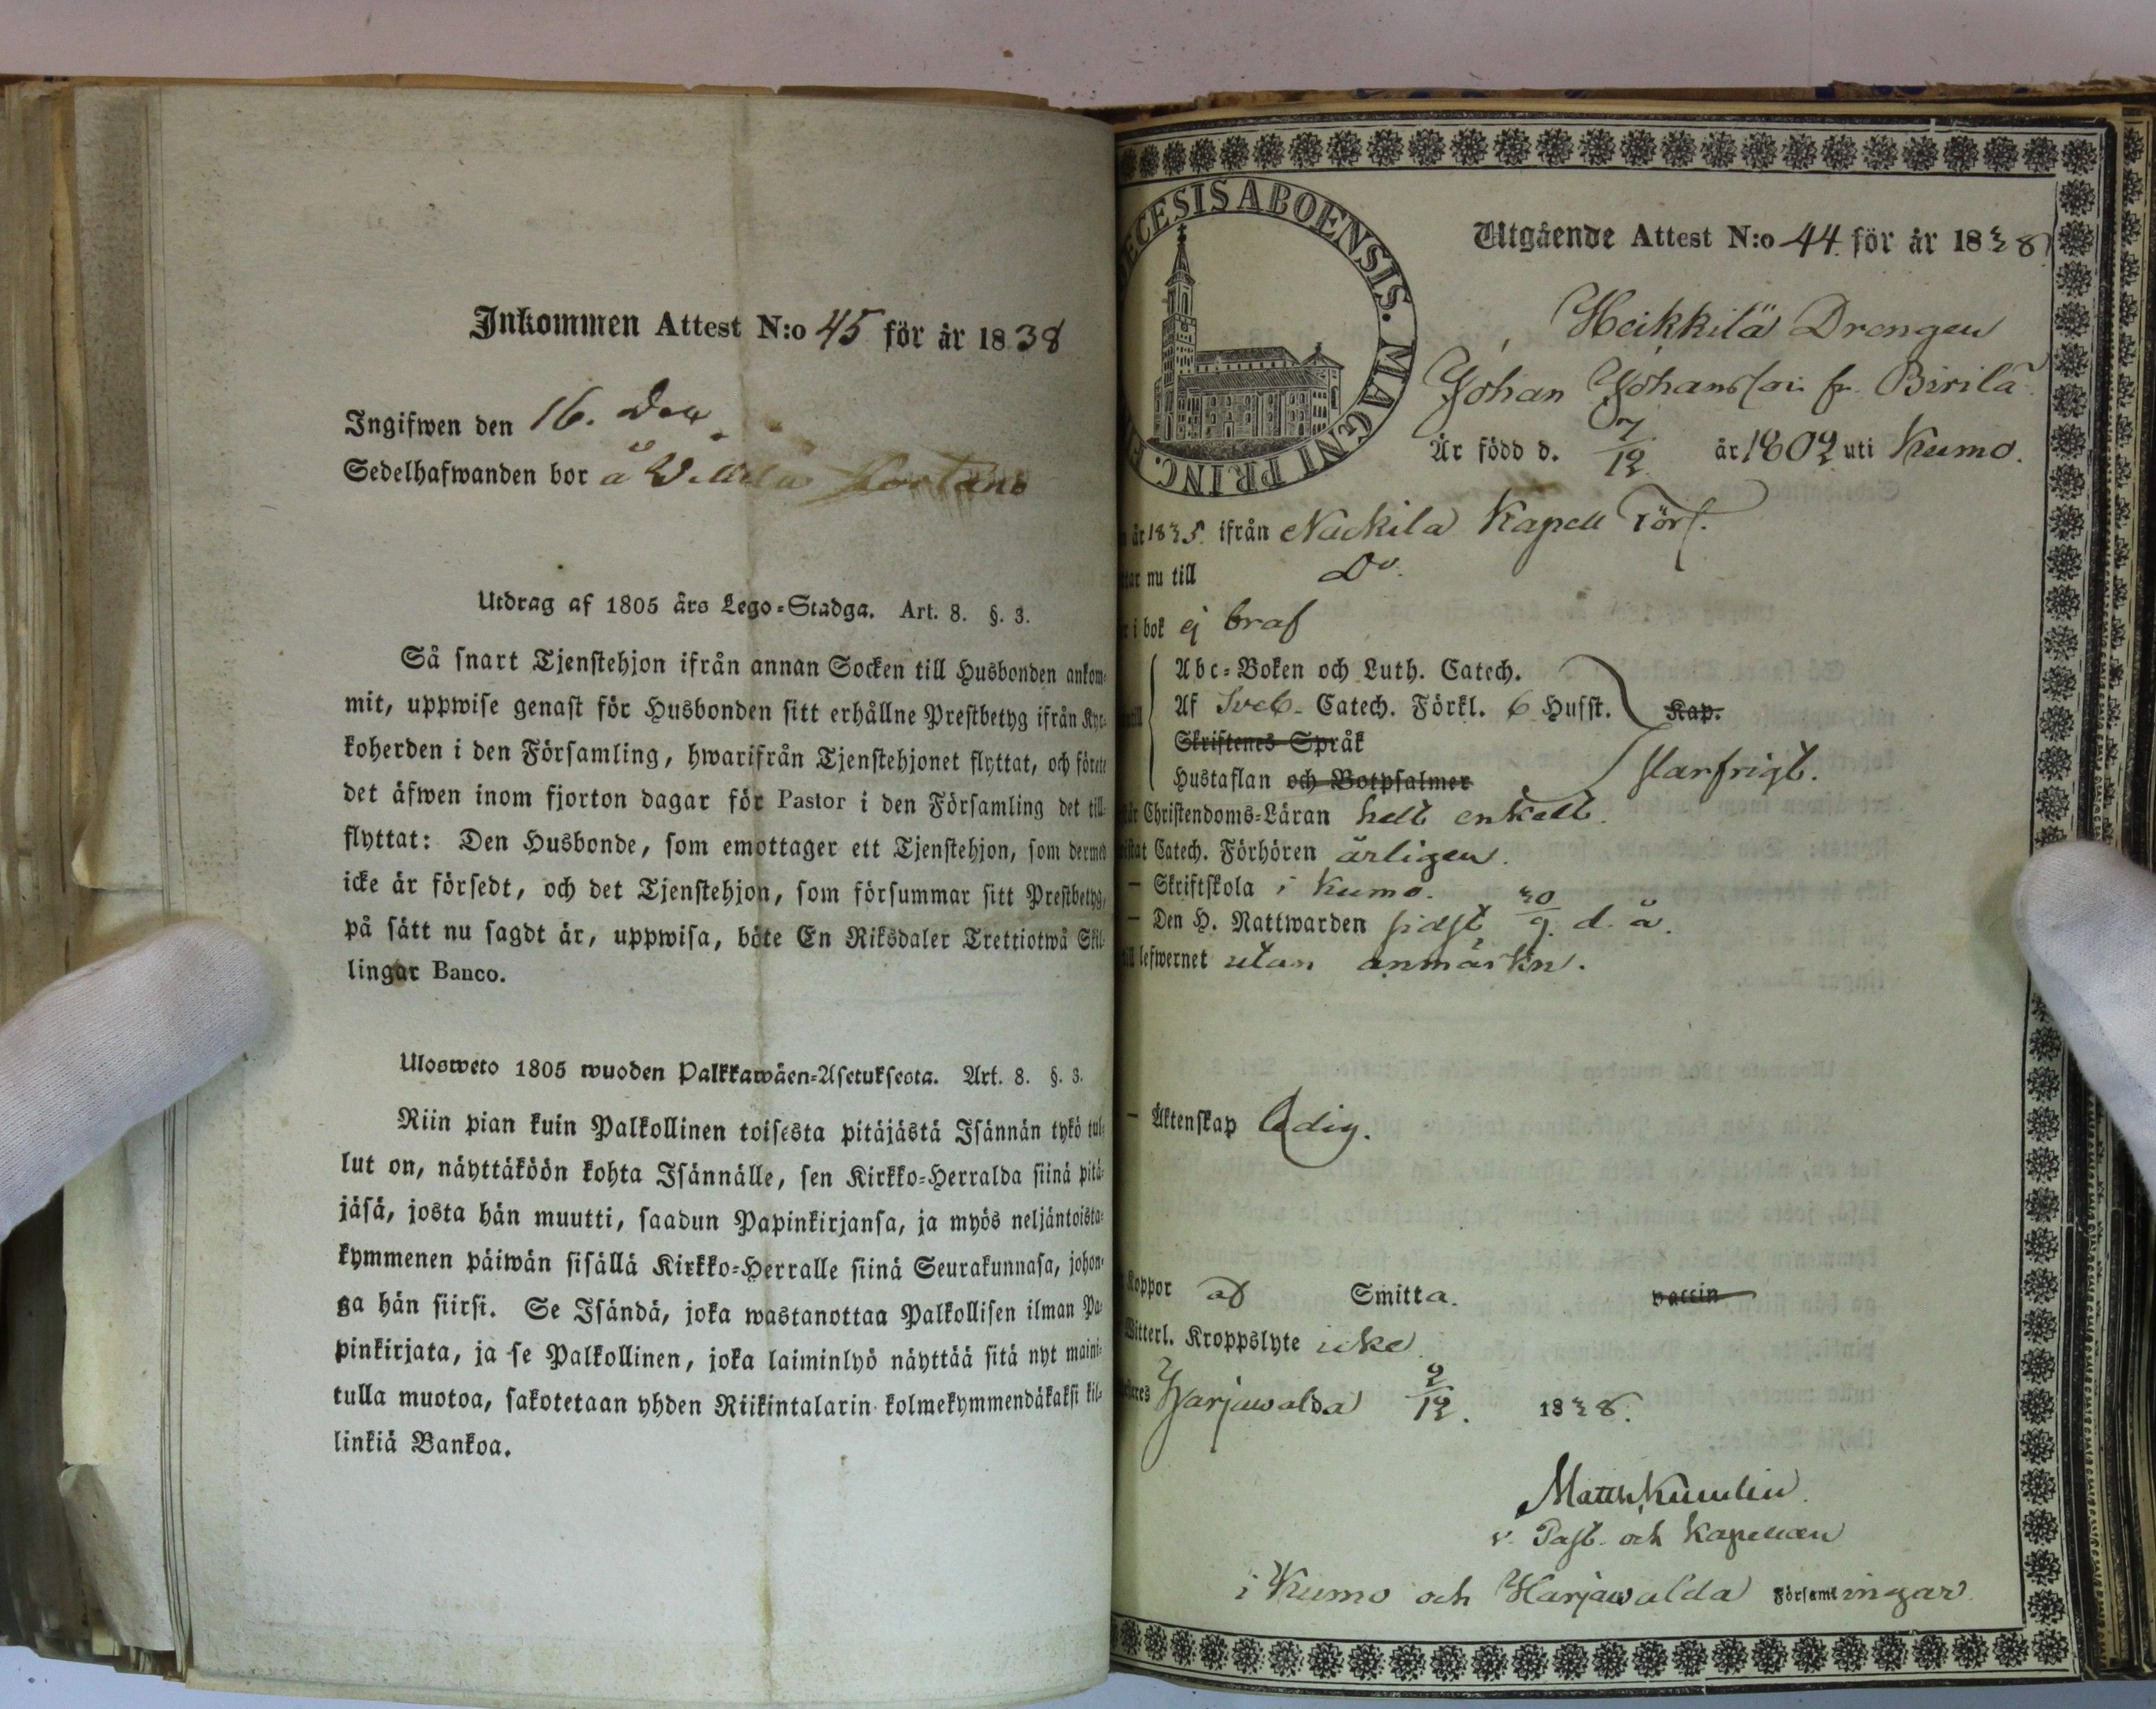 Inkommen Attest N:o 45 för år 1838
Ingifwen den 16. Dec.
Sedelhafwanden bor å
Utdrag af 1805 års Lego-Stadga. Art. 8. §. 3.
Så snart Tjenstehjon ifrån annan Socken till Husbonden ankom-
mit, uppwise genast för Husbonden sitt erhållne Prestbetyg ifrån Kyr-
koherden i den Församling, hwarifrån Tjenstehjonet flyttat, och förete
det äfwen inom fjorton dagar för Pastor i den Församling det till
flyttat: Den Husbonde, som emottager ett Tjenstehjon, som dermed
icke är försedt, och det Tjenstehjon, som försummar sitt Prestbetyg,
på sätt nu sagdt är, uppwisa, böte En Riksdaler Trettiotwå Skil-
lingar Banco.
Ulosweto 1805 wuoden Palkkawäen-Asetuksesta. Art. 8. §. 3.
Niin pian kuin Palkollinen toisesta pitäjästä Isännän tykö tul-
lut on, näyttäköön kohta Isännälle, sen Kirkko-Herralda siinä pitä-
jäsä, josta hän muutti, saadun Papinkirjansa, ja myös neljäntoista-
kymmenen päiwän sisällä Kirkko-Herralle siinä Seurakunnasa, johon-
ga hän siirsi. Se Isändä, joka wastanottaa Palkollisen ilman Pa-
pinkirjata, ja se Palkollinen, joka laiminlyö näyttää sitä nyt maini-
tulla muotoa, sakotetaan yhden Riikintalarin kolmekymmendäkaksi kil-
linkiä Bankoa.
ECESIS ABOENSIS. MAGNI PRINC.
Utgående Attest N:o 44 för år 1838
Heikkilä Drengen
Johan Johansson fr. Birilä
Är född d. 7/12 år 1802 uti Kumo.
år 1835 ifrån Nackila Kapell Förs.
nu till Do.
i bok ej braf
Abc-Boken och Luth. Catech.
Af Sveb. Catech. Förkl. 6 Husst. Kap.
Skriftenes Språk
Hustaflan och Botpsalmer slarfrigt.
Christendoms-Läran helt enkelt.
Catech. Förhören årligen.
— Skriftskola i Kumo.
— Den H. Nattwarden sidst 30/9 d. å.
lefwernet utan anmärkn.
— Äktenskap ledig.
Koppor af Smitta. vaccin
Witterl. Kroppslyte icke
Harjawalda 9/12. 1838.
Matth Kumlin
v. Past. och Kapellan
i Kumo och Harjawalda Församlingar